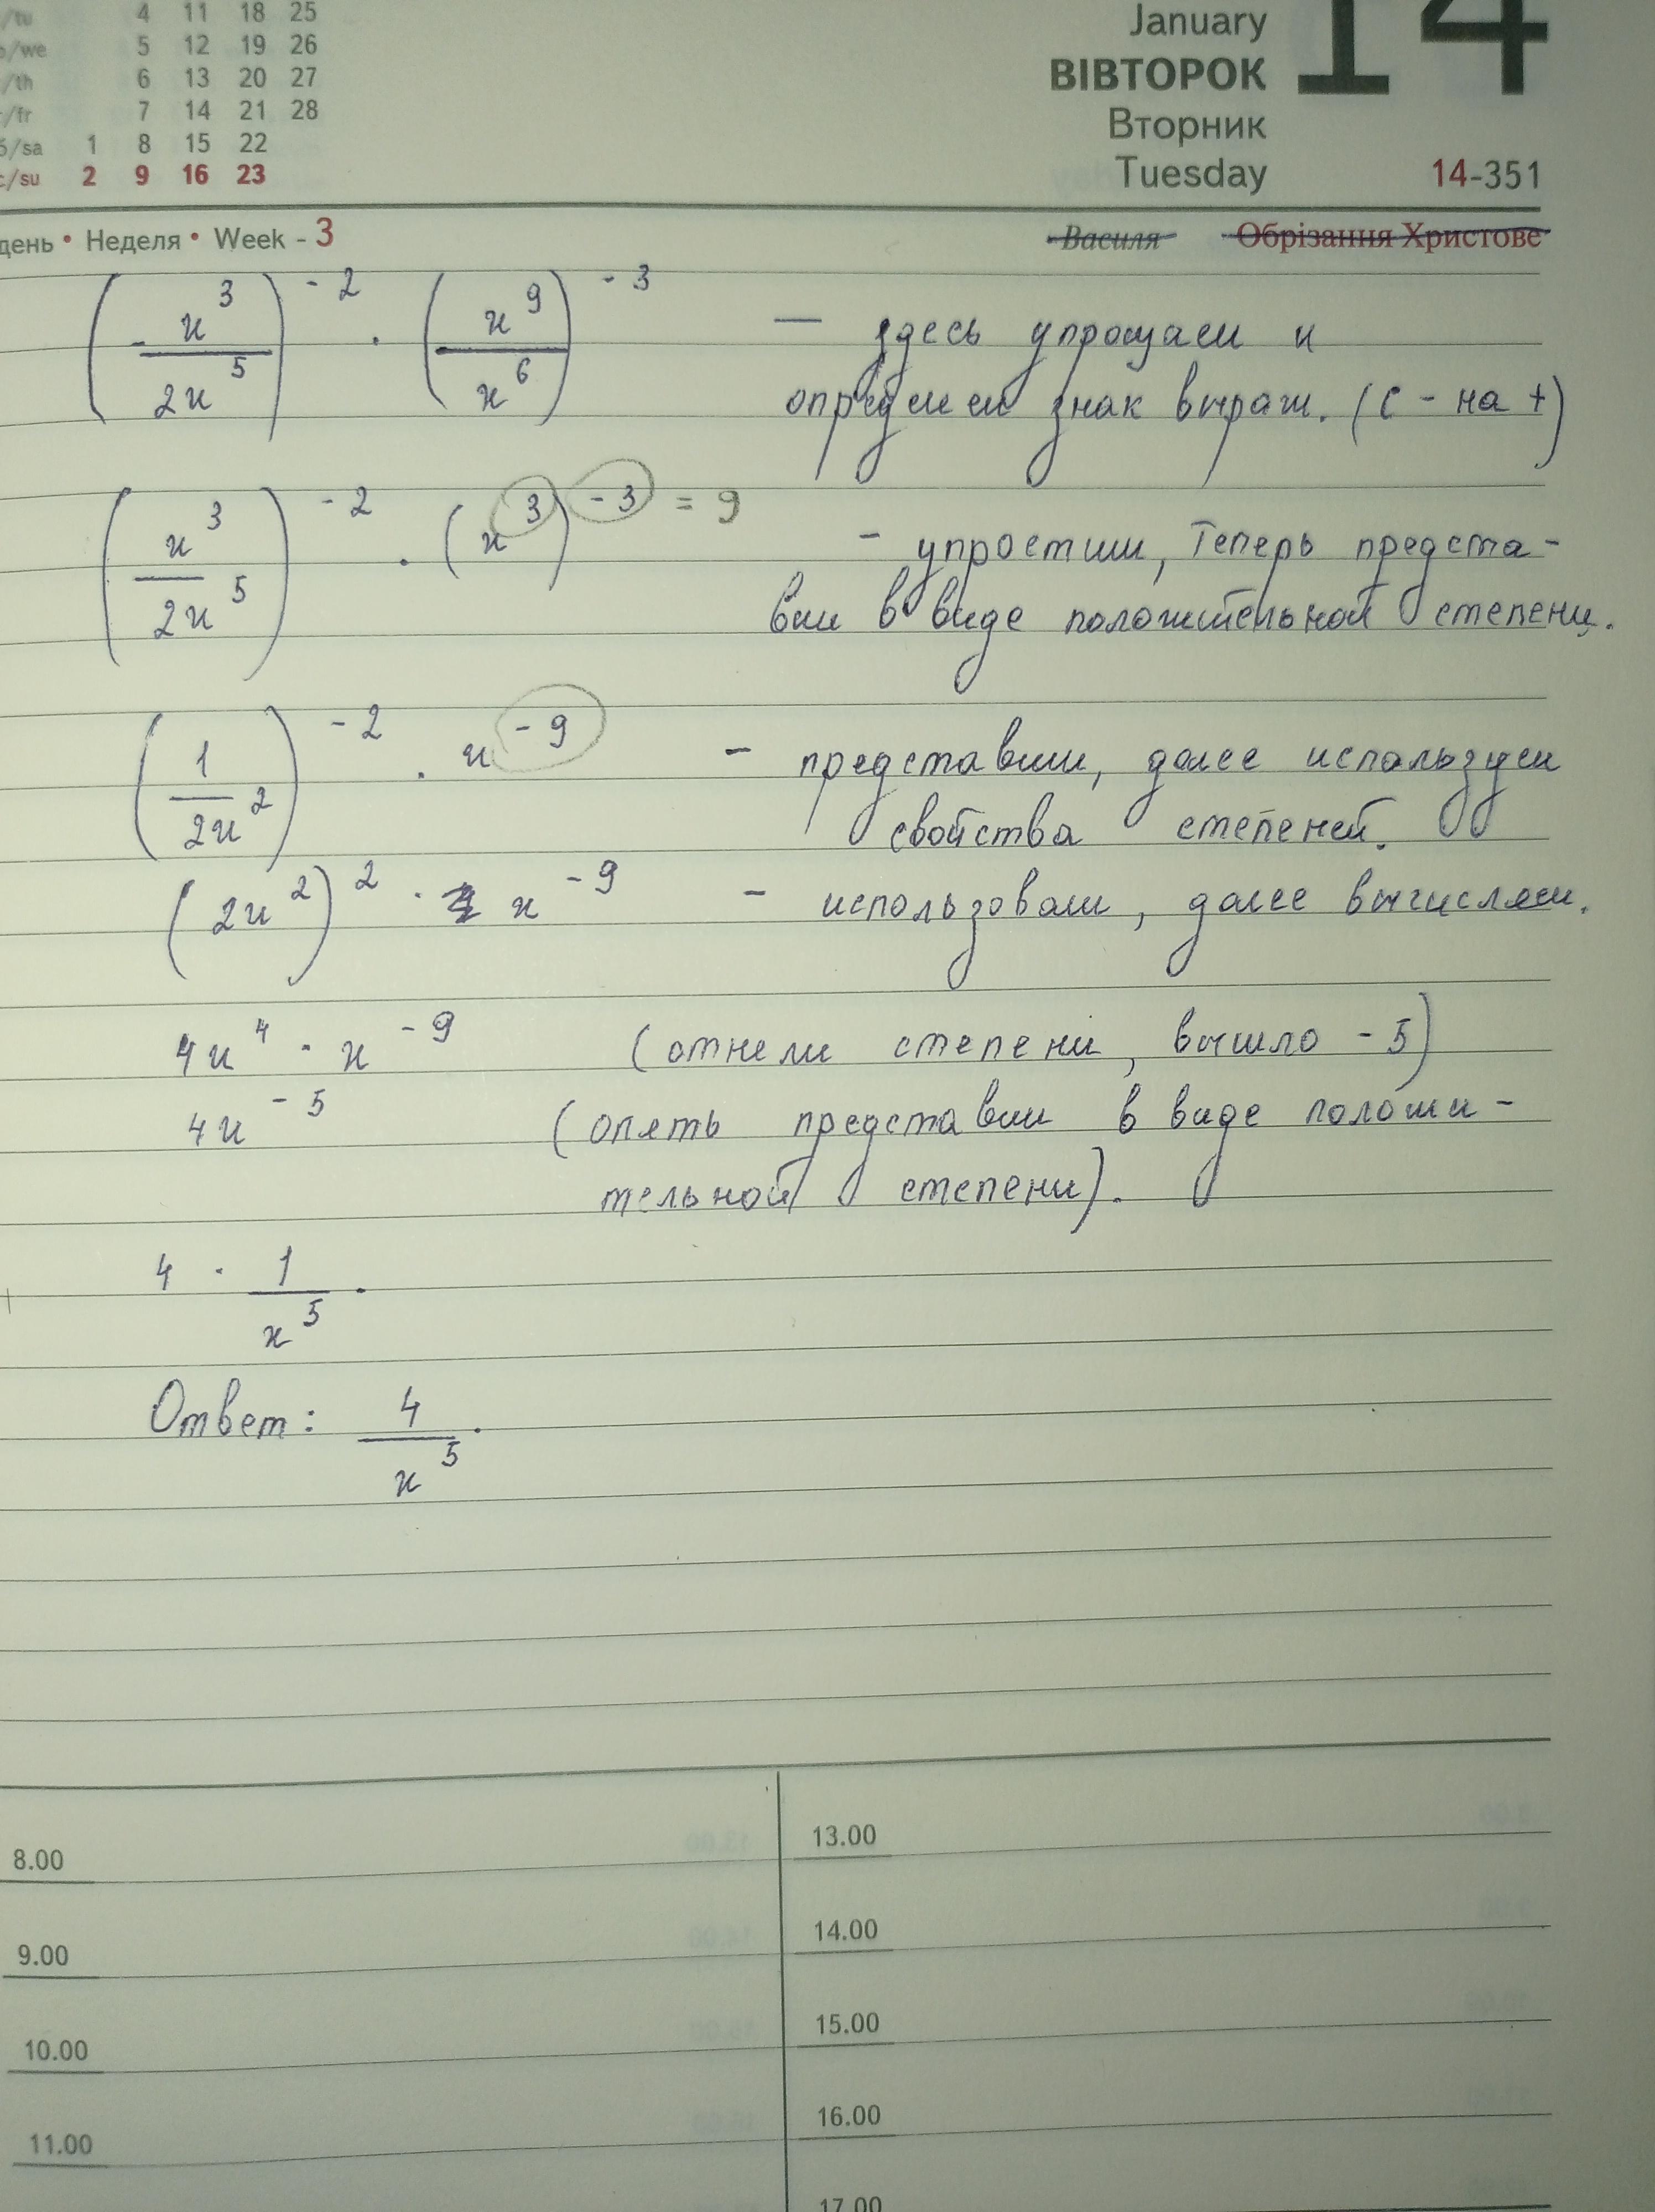 /tu 4 11 18 25
/we 5 12 19 26
/th 6 13 20 27
/fr 7 14 21 28
/sa 1 8 15 22
/su 2 9 16 23
14
January
ВІВТОРОК
Вторник
Tuesday 14-351
день • Неделя • Week - 3
Василя Обрізання Христове
(- x³ / 2x⁵)⁻² · (x⁹ / x⁶)⁻³ — здесь упрощаем и
определяем знак выраж. (с - на +)
(x³ / 2x⁵)⁻² · (x³)⁻³ = 9 - упростили, теперь предста-
вим в виде положительной степени.
(1 / 2x²)⁻² · x⁻⁹ - представили, далее используем
свойства степеней.
(2x²)² · x⁻⁹ - использовали, далее вычисляем.
4x⁴ · x⁻⁹ (отнели степени, вышло -5)
4x⁻⁵ (опять представим в виде положи-
тельной степени).
4 · 1 / x⁵.
Ответ: 4 / x⁵.
8.00 13.00
9.00 14.00
10.00 15.00
11.00 16.00
17.00